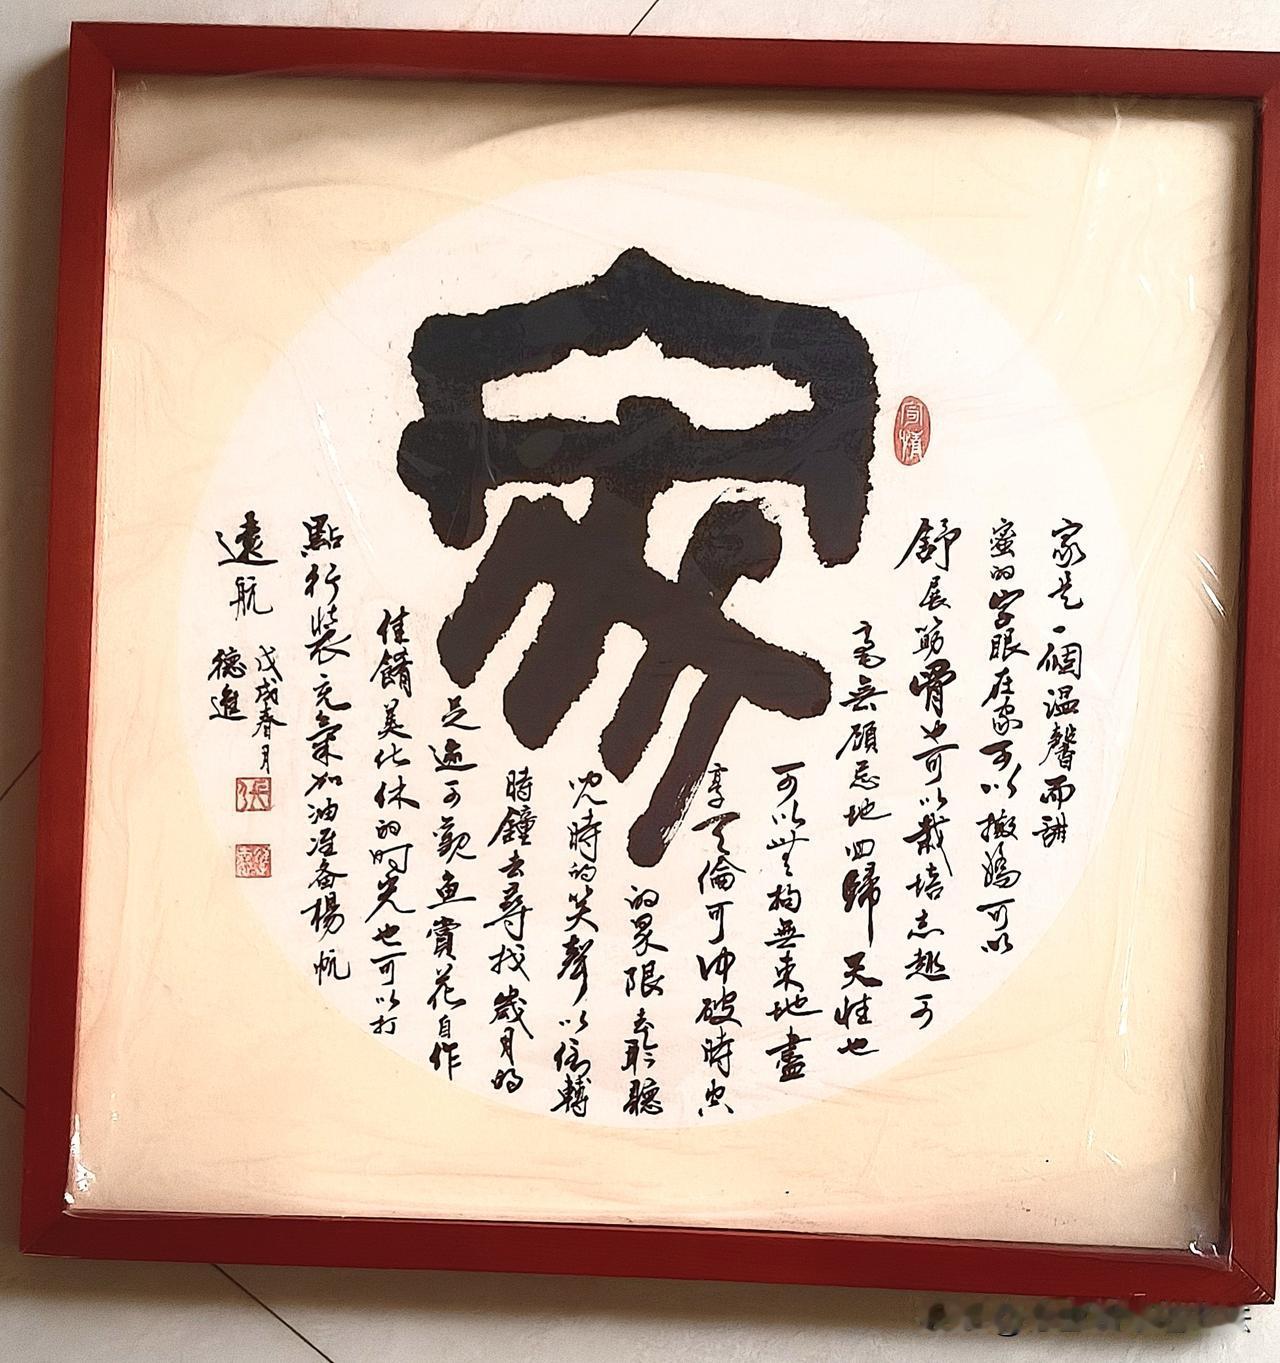 家
家是一個温馨而甜
蜜的字眼在家可以撒嬌可以
舒展筋骨也可以栽培志趣可
毫無顧忌地回歸天性也
可以無拘無束地盡
享天倫可沖破時空
的界限去聆聽
兒時的笑聲以倒轉
時鐘去尋找歲月的
足迹可觀魚賞花自作
佳餚美化休的时光也可以打
點行裝充氣加油准备楊帆
遠航
戊戌春月
德進